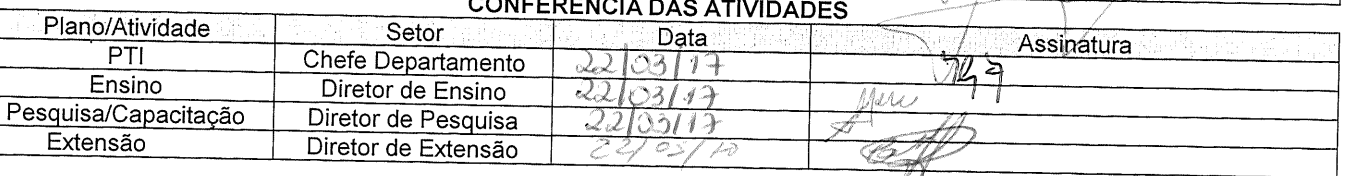 CONFERÊNCIA DAS ATIVIDADES
Plano/Atividade Setor Data Assinatura
PTI Chefe Departamento 22/03/17
Ensino Diretor de Ensino 22/03/17
Pesquisa/Capacitação Diretor de Pesquisa 22/03/17
Extensão Diretor de Extensão